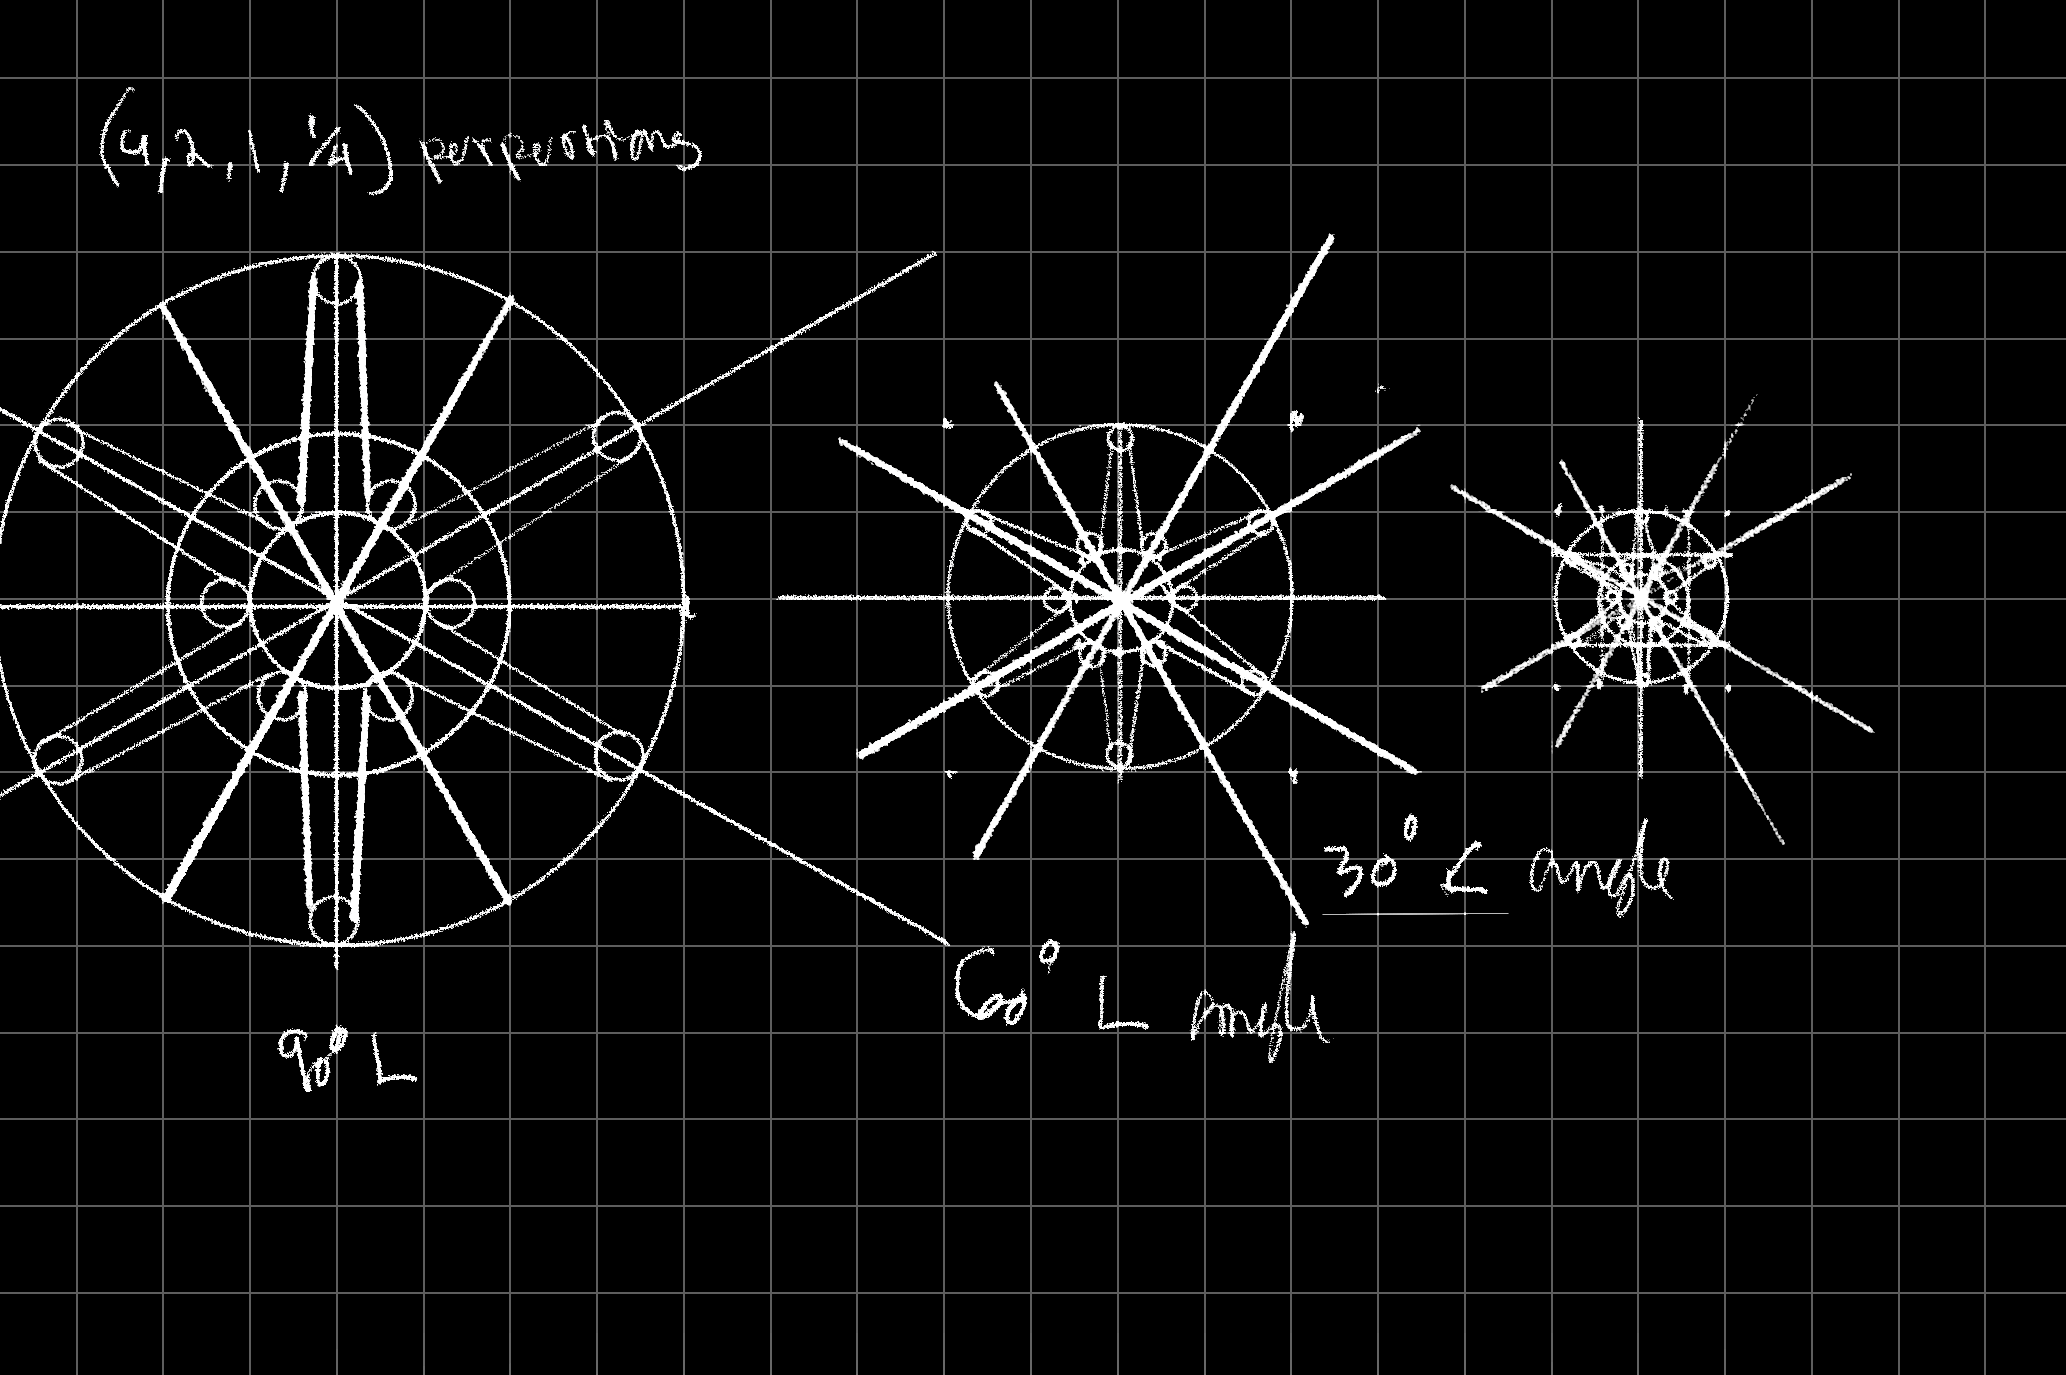 (4, 2, 1, 1/4) perpertions
30° L angle
60° L angle
90° L